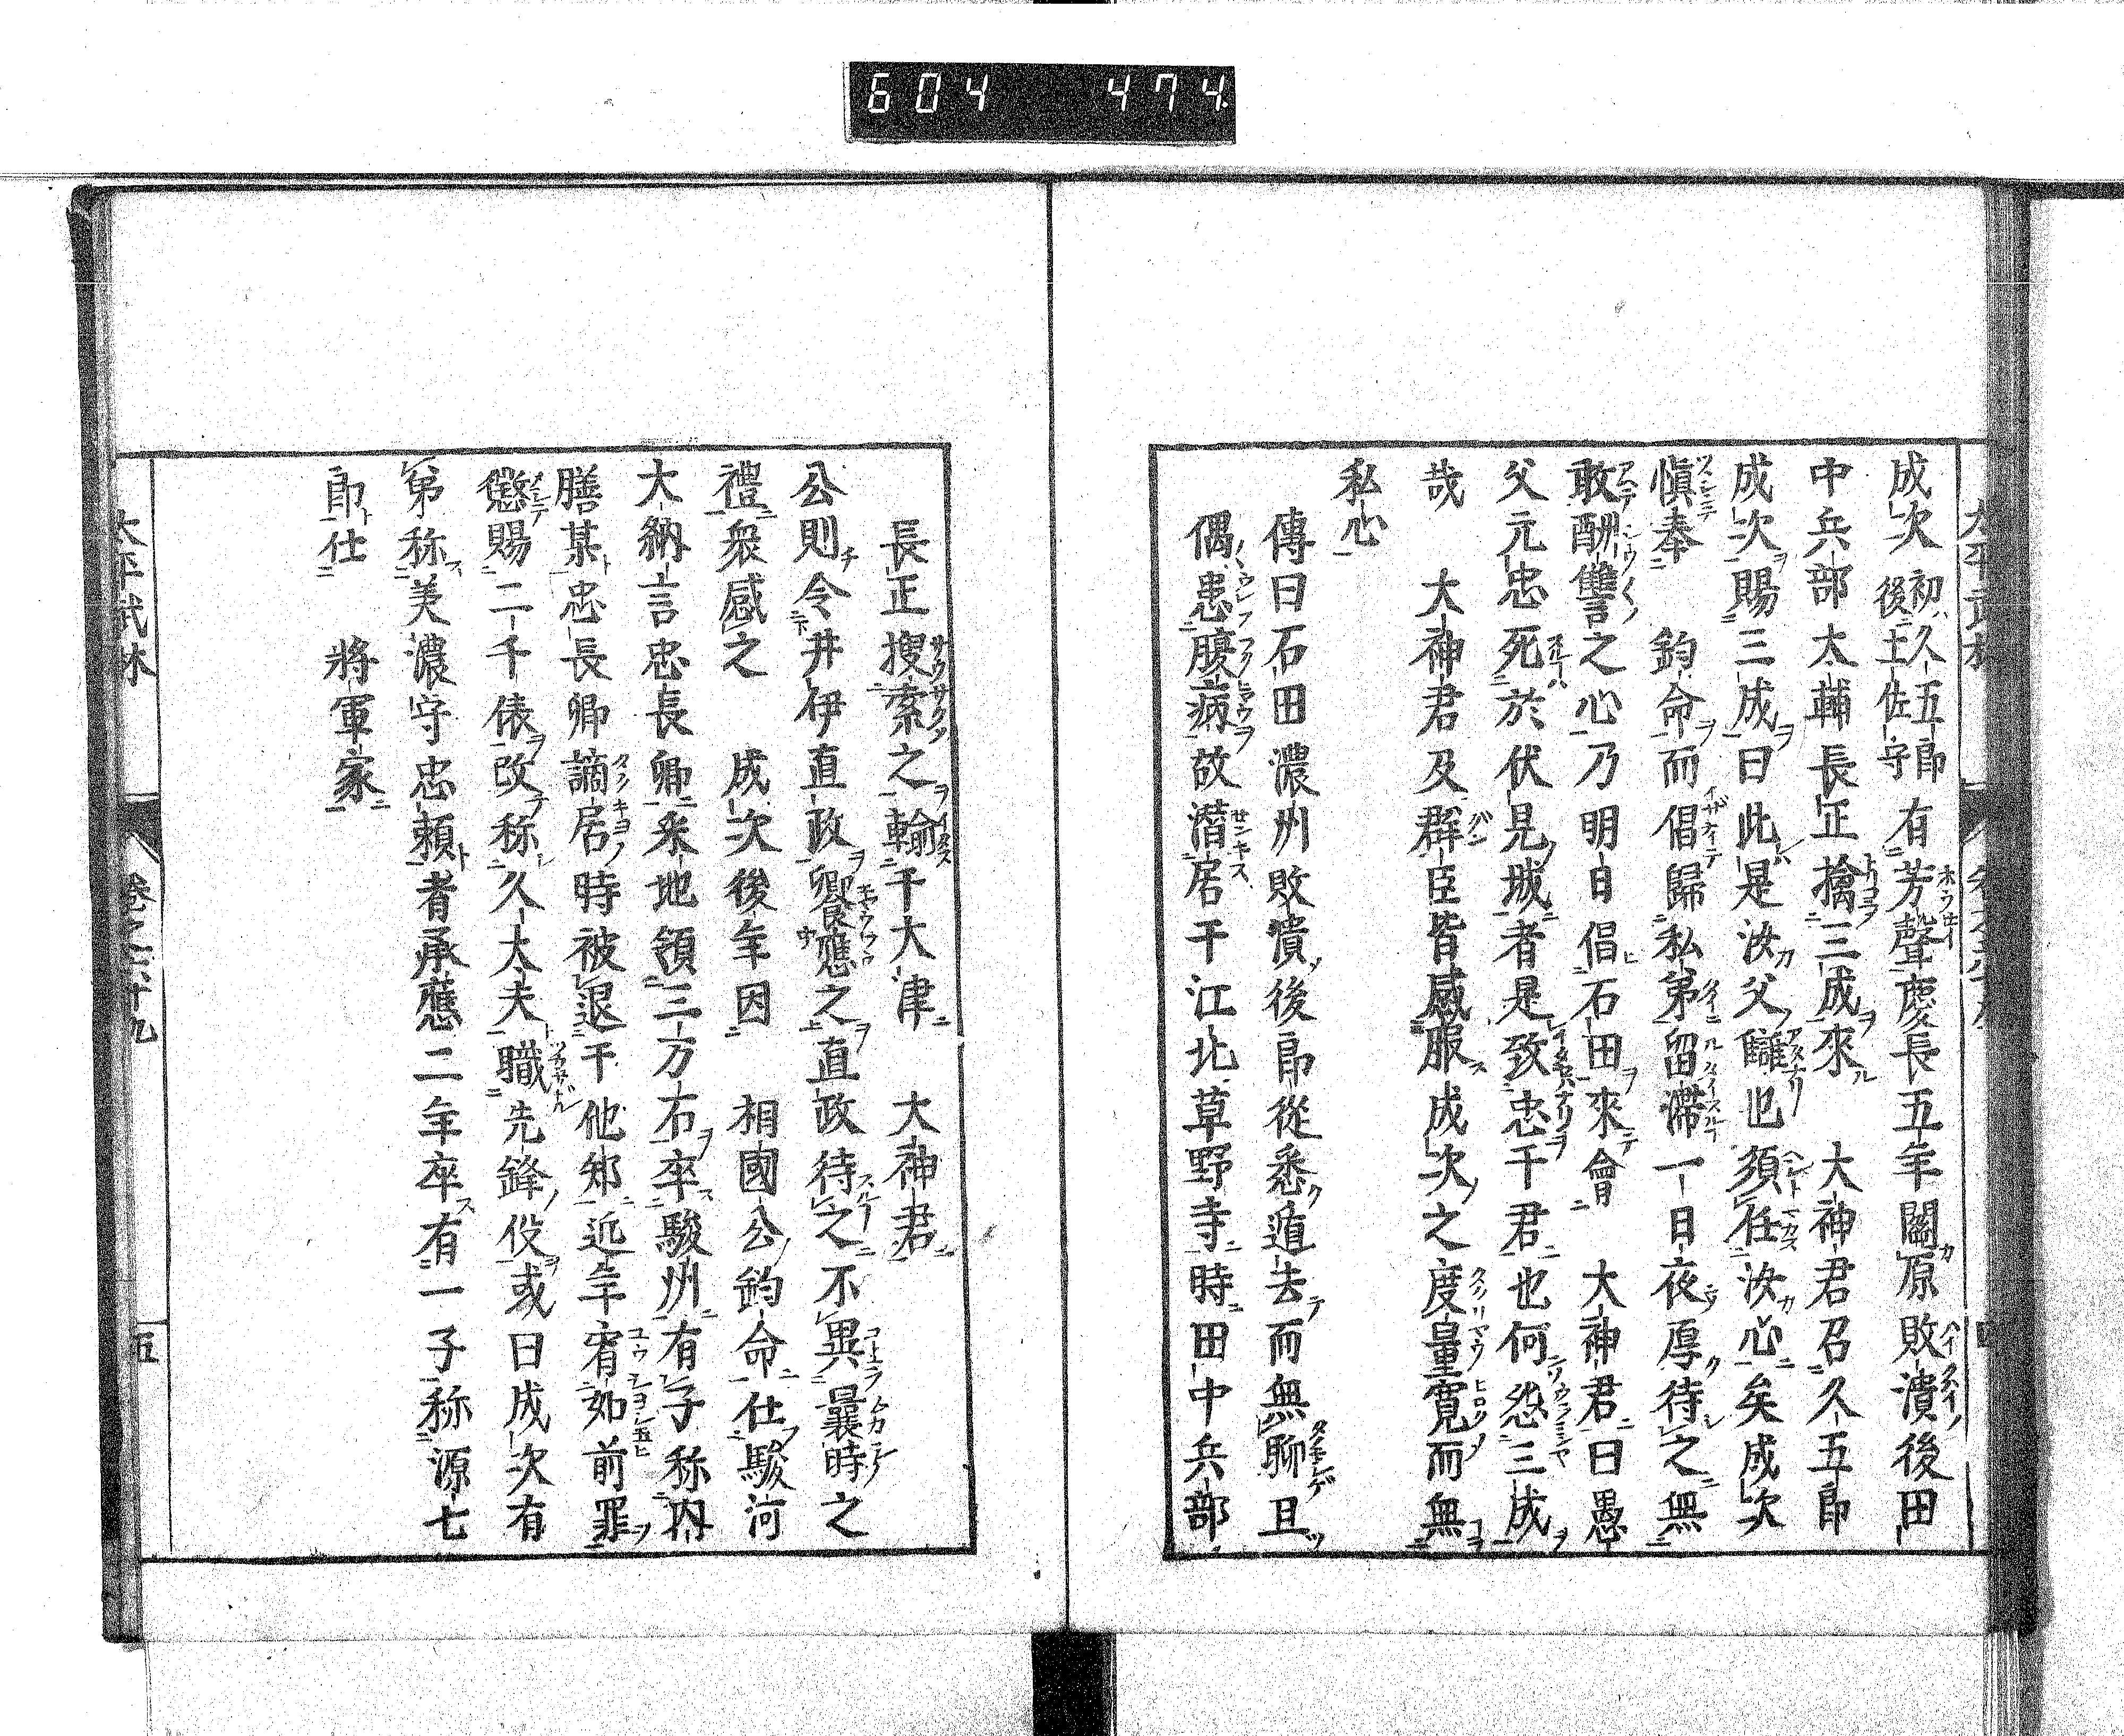 604 474
成次 初久五郎 後土佐守 有芳聲慶長五年關原敗潰後田
中兵部太輔長正擒三成來 大神君召久五郎
成次賜三成曰此是汝父讎也須任汝心矣成次
愼奉 鈞命而倡歸私第留滯一日夜厚待之無
敢酬讐之心乃明日倡石田來會 大神君曰愚
父元忠死於伏見城者是致忠于君也何怨三成
哉 大神君及群臣皆感服成次之度量寬而無
私心
傳曰石田濃州敗潰後郎從悉遁去而無聊且
偶患腹病故潛居于江北草野寺時田中兵部
長正搜索之輸于大津 大神君
公則令井伊直政饗應之直政待之不異曩時之
禮衆感之 成次後年因 相國公鈞命仕駿河
大納言忠長卿釆地領三万石卒駿州有子称内
膳某忠長卿謫居時被退于他邦近年宥如前罪
懲賜二千俵改称久大夫職先鋒役或曰成次有
弟称美濃守忠頼者承應二年卒有一子称源七
郎仕 將軍家
太平武林 卷之六十九 五